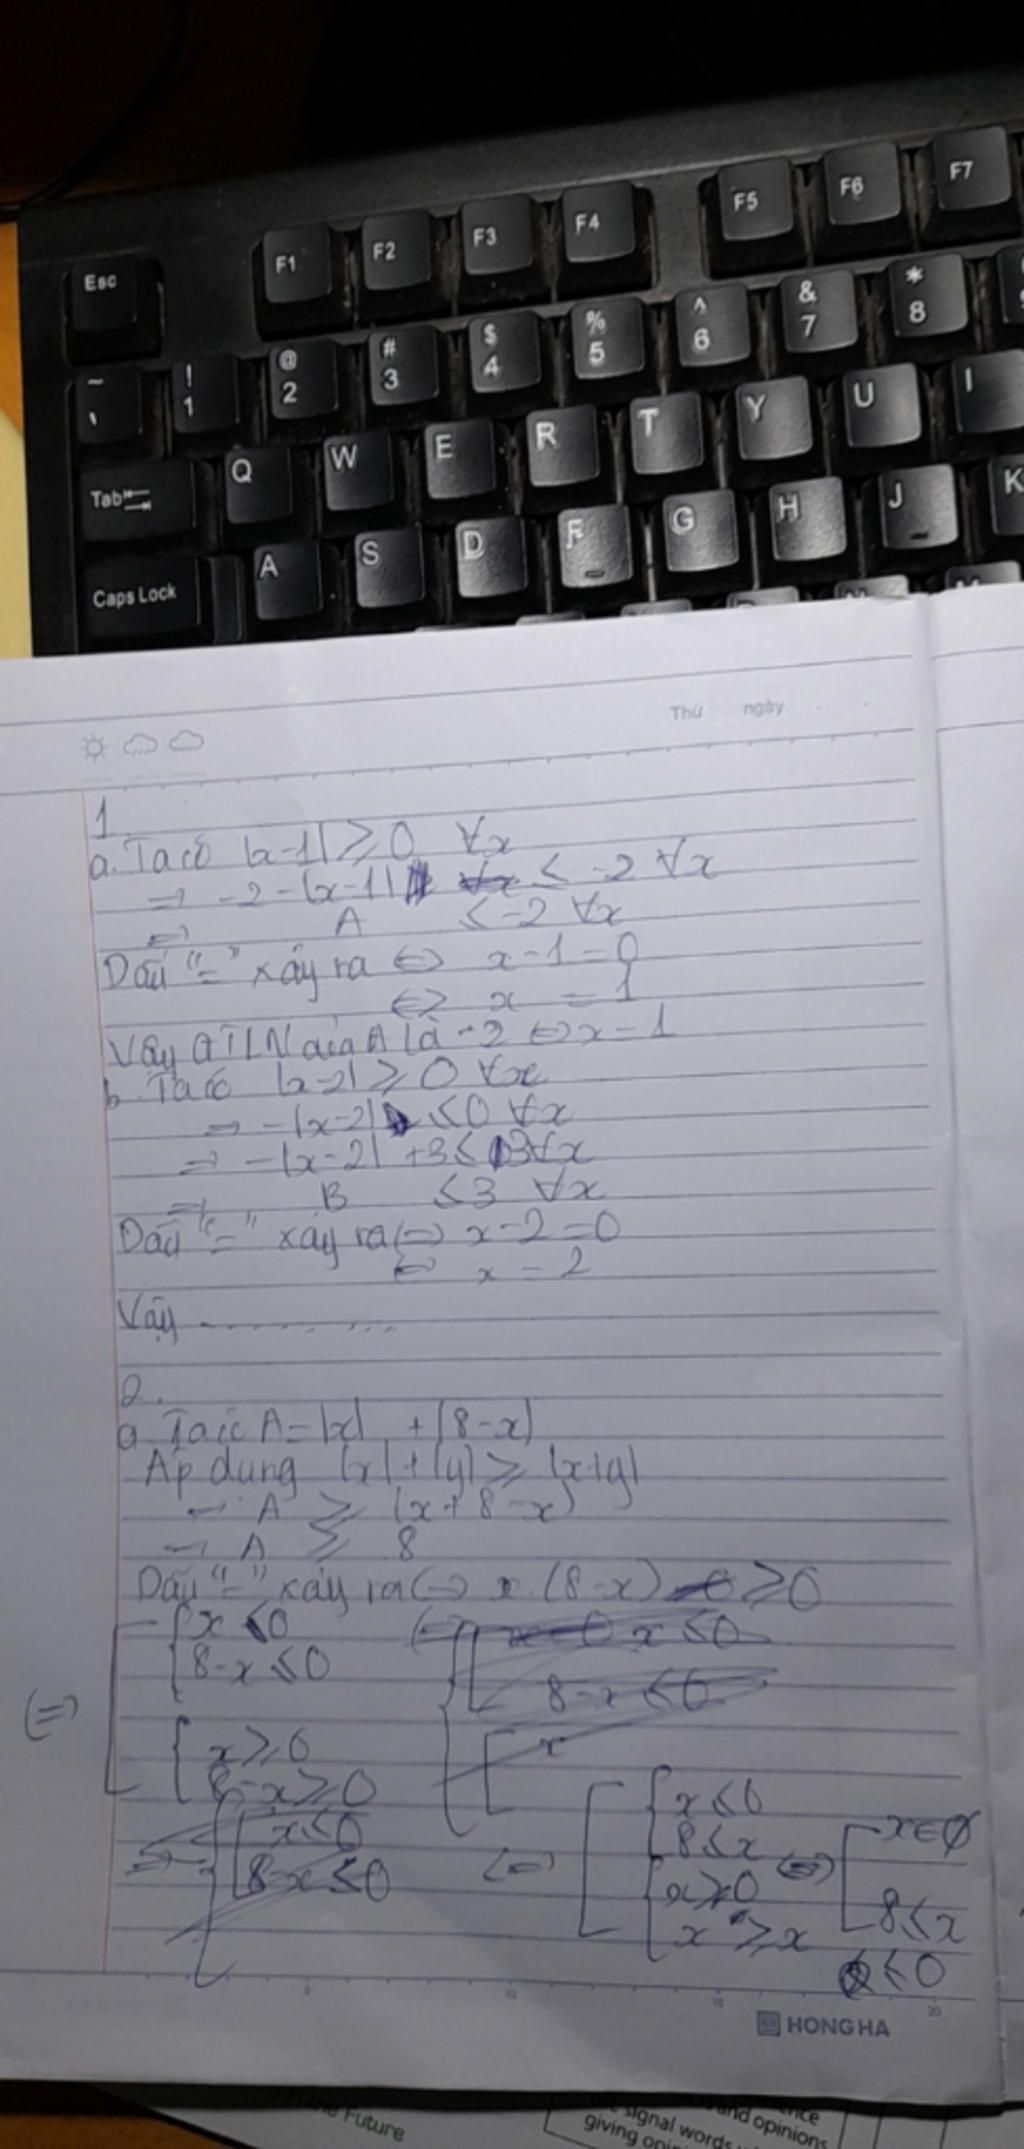 Esc F1 F2 F3 F4 F5 F6 F7
~ ! 1 @ 2 # 3 $ 4 % 5 ^ 6 & 7 * 8
Tab Q W E R T Y U I
Caps Lock A S D F G H J K
Thứ ngày
1
a. Ta có |x-1| ≥ 0 ∀x
⇒ -2-|x-1| ≤ -2 ∀x
⇒ A ≤ -2 ∀x
Dấu "=" xảy ra ⇔ x-1=0
⇔ x = 1
Vậy GTLN của A là -2 ⇔ x = 1
b. Ta có |x-2| ≥ 0 ∀x
⇒ -|x-2| ≤ 0 ∀x
⇒ -|x-2| +3 ≤ 3 ∀x
⇒ B ≤ 3 ∀x
Dấu "=" xảy ra ⇔ x-2=0
⇔ x = 2
Vậy
2.
a. Ta có A = |x| + |8-x|
Áp dụng |x|+|y| ≥ |x+y|
⇒ A ≥ |x+8-x|
⇒ A ≥ 8
Dấu "=" xảy ra ⇔ x.(8-x) ≥ 0
x ≤ 0
8-x ≤ 0
⇔
x ≥ 0
8-x ≥ 0
⇔
x ≤ 0
8 ≤ x
x ≥ 0
⇔
x ∈ ∅
8 ≤ x
≤ 0
5 10 15 20
HONG HA
the Future
signal words
giving
and opinions